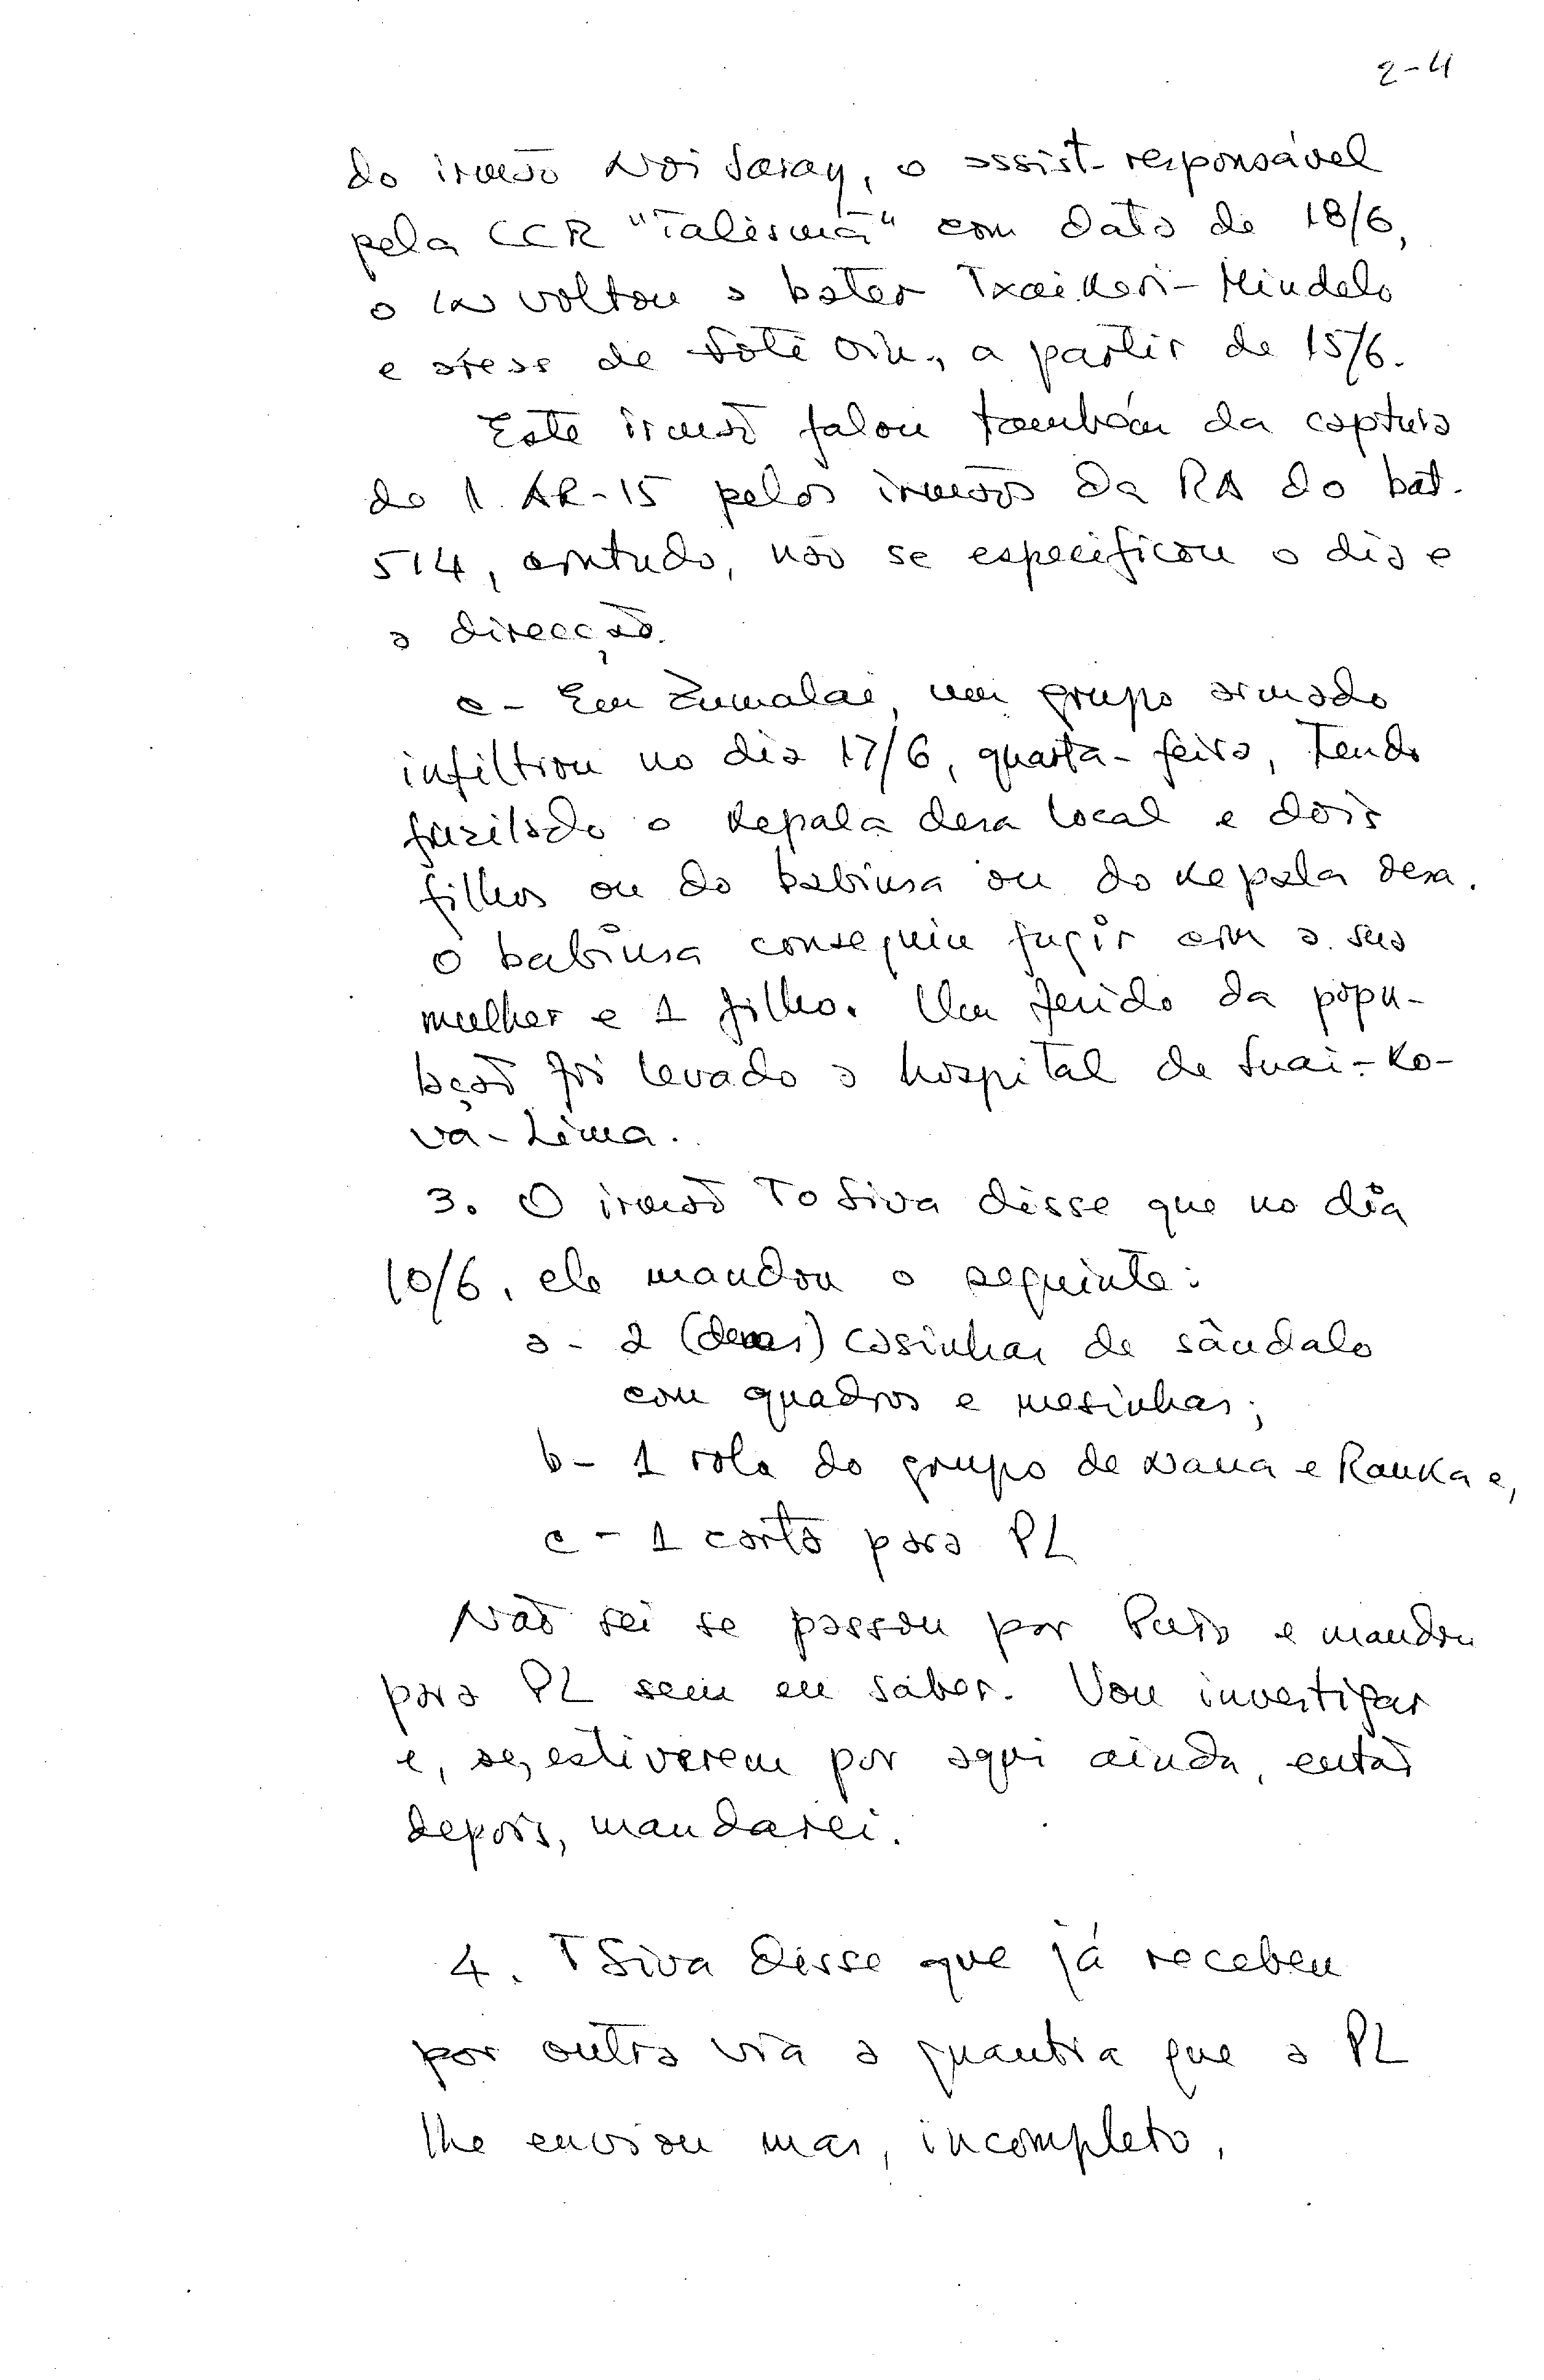 2-4
do irmão Noi Saray, o assist. responsável
pela CCR "Talismã" com data de 18/6,
o in voltou a bater Txai Keri - Mindelo
e áreas de Foté Oin, a partir de 15/6.
Este irmão falou também da captura
de 1 AR-15 pelos irmãos da RA do bat.
514, contudo, não se especificou o dia e
a direcção.
c - Em Zumalae, um grupo armado
infiltrou no dia 17/6, quarta-feira, tendo
fuzilado o kepala desa local e dois
filhos ou do babinsa ou do kepala desa.
O babinsa conseguiu fugir com a sua
mulher e 1 filho. Um ferido da popu-
lação foi levado a hospital de Suai - Ko-
va-Lima.
3. O irmão To Siva disse que no dia
10/6, ele mandou o seguinte:
a - 2 (duas) casinhas de sândalo
com quadros e mesinhas;
b - 1 rolo do grupo de Nana e Ranka e,
c - 1 carta para PL
Não sei se passou por e mandou
para PL sem eu saber. Vou investigar
e, se, estiverem por aqui ainda, então
depois, mandarei.
4. T Siva disse que já recebeu
por outra via a quantia que a PL
lhe enviou mas, incompleto,